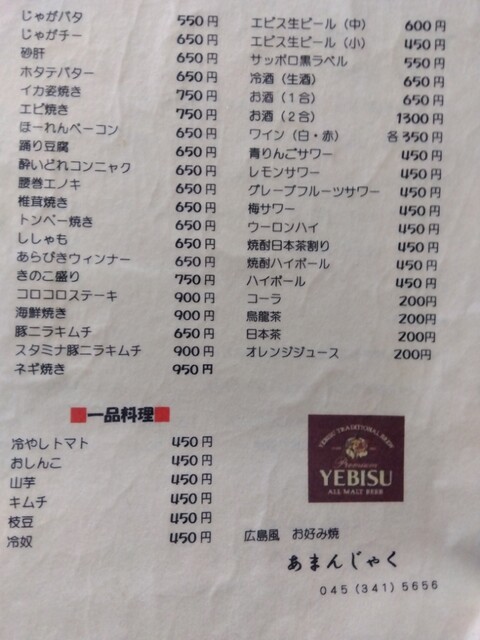 じゃがバタ 550円
じゃがチー 650円
砂肝 650円
ホタテバター 650円
イカ姿焼き 750円
エビ焼き 750円
ほーれんベーコン 650円
踊り豆腐 650円
酔いどれコンニャク 650円
腰巻エノキ 650円
椎茸焼き 650円
トンペー焼き 650円
ししゃも 650円
あらびきウィンナー 650円
きのこ盛り 750円
コロコロステーキ 900円
海鮮焼き 900円
豚ニラキムチ 650円
スタミナ豚ニラキムチ 900円
ネギ焼き 950円
■一品料理■
冷やしトマト 450円
おしんこ 450円
山芋 450円
キムチ 450円
枝豆 450円
冷奴 450円
エビス生ビール（中） 600円
エビス生ビール（小） 450円
サッポロ黒ラベル 550円
冷酒（生酒） 650円
お酒（1合） 650円
お酒（2合） 1300円
ワイン（白・赤） 各350円
青りんごサワー 450円
レモンサワー 450円
グレープフルーツサワー 450円
梅サワー 450円
ウーロンハイ 450円
焼酎日本茶割り 450円
焼酎ハイボール 450円
ハイボール 450円
コーラ 200円
烏龍茶 200円
日本茶 200円
オレンジジュース 200円
YEBISU TRADITIONAL BREW
Premium
YEBISU
ALL MALT BEER
広島風 お好み焼
あまんじゃく
045（341）5656